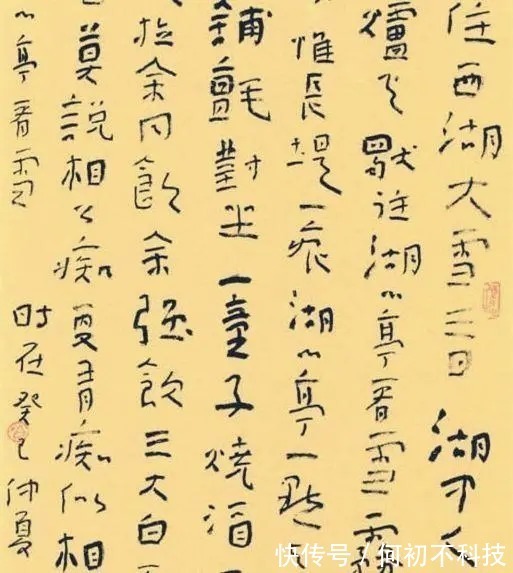 住西湖大雪三日湖中
爐火獨往湖心亭看雪霧
惟長堤一痕湖心亭一點
鋪氈對坐一童子燒酒
拉余同飲余強飲三大白而
曰莫說相公痴更有痴似相
心亭看雪 時在癸巳仲夏
快传号/何初不科技